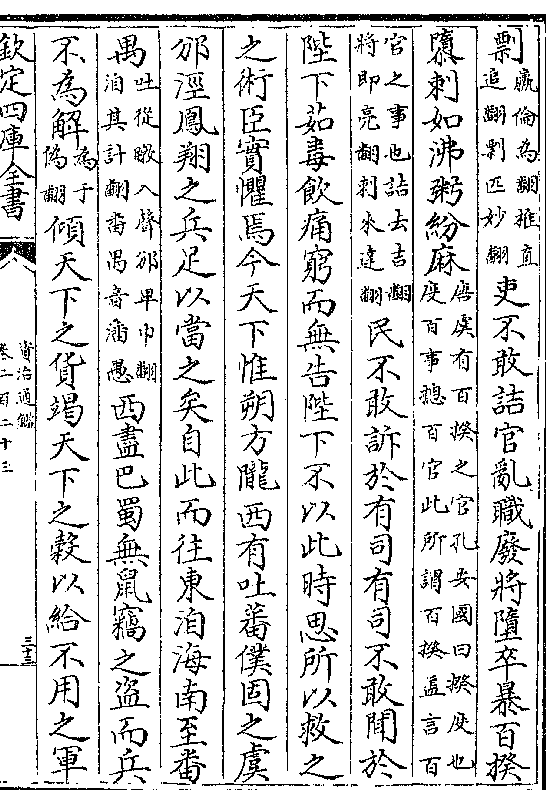 剽羸倫為翻椎直追翻剽匹妙翻吏不敢詰官亂職廢將墮卒暴百揆
隳剌如沸粥紛麻唐虞有百揆之官孔安國曰揆度也度百事總百官此所謂百揆盖言百
官之事也詰去吉翻將即亮翻剌來達翻民不敢訴於有司有司不敢聞於
陛下茹毒飲痛窮而無告陛下不以此時思所以救之
之術臣實懼焉今天下惟朔方隴西有吐蕃僕固之虞
邠涇鳳翔之兵足以當之矣自此而往東洎海南至番
禺吐從暾入聲邠卑巾翻洎其計翻番禺音潘愚西盡巴蜀無鼠竊之盜而兵
不為解為于偽翻傾天下之貨竭天下之榖以給不用之軍
欽定四庫全書
資治通鑑
卷二百二十三
三十三